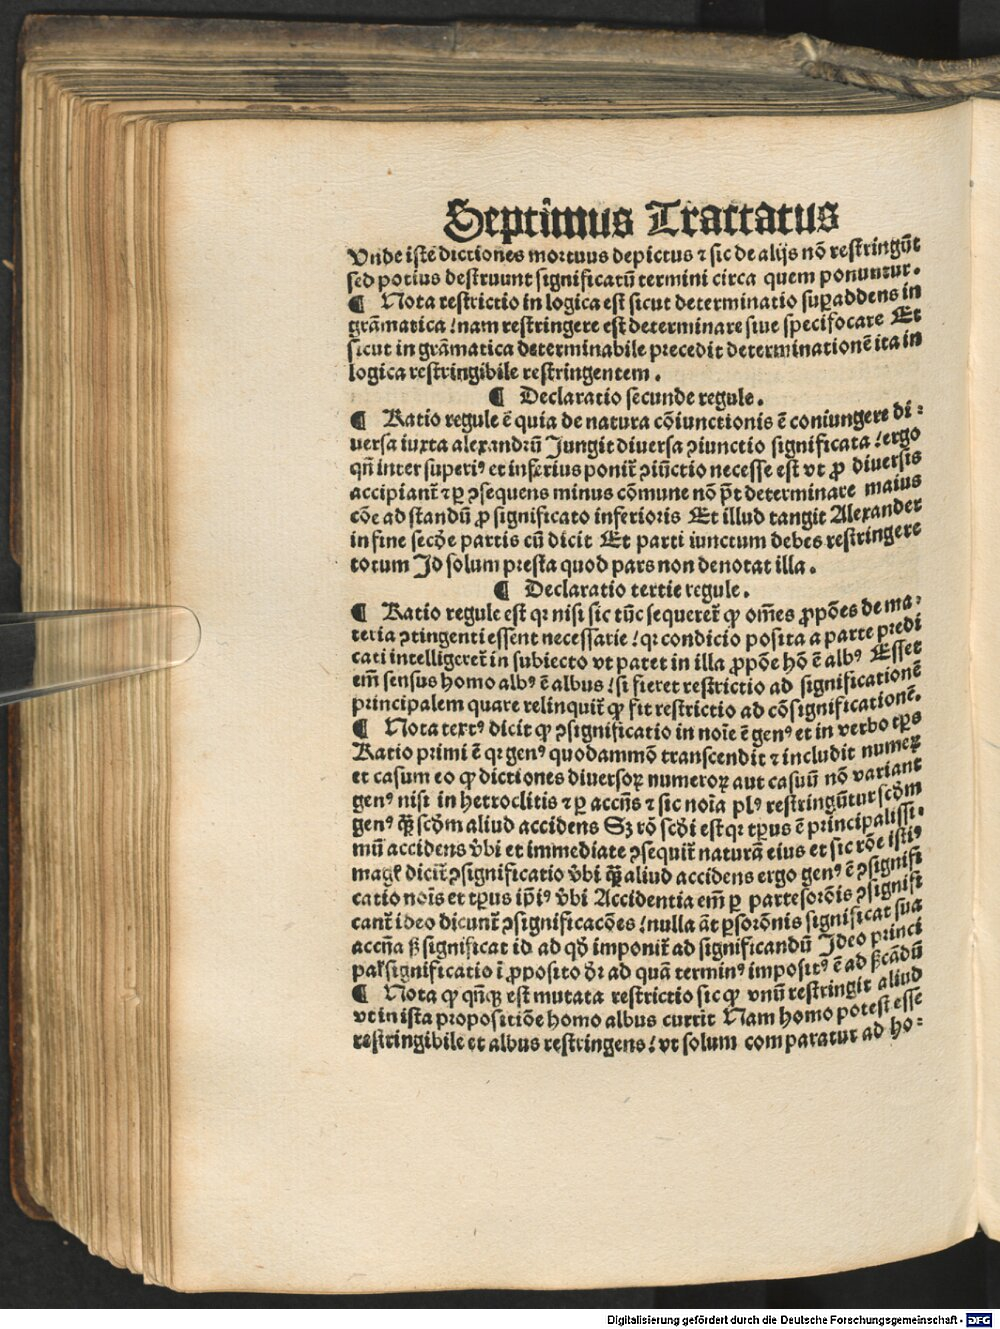 Septimus Tractatus
Vnde iste dictiones mortuus depictus ⁊ sic de alijs nō restringūt
sed potius destruunt significatū termini circa quem ponuntur.
¶ Nota restrictio in logica est sicut determinatio superaddens in
grāmatica / nam restringere est determinare siue specifocare Et
sicut in grāmatica determinabile precedit determinationē ita in
logica restringibile restringentem.
¶ Declaratio secunde regule.
¶ Ratio regule ē quia de natura cōiunctionis ē coniungere di⸗
uersa iuxta alexandrū Jungit diuersa ꝯiunctio significata / ergo
qn̄ inter superiꝰ et inferius ponit̄ ꝯiūctio necesse est vt ꝓ diuersis
accipiant̄ ⁊ ꝑ ꝯsequens minus cōmune nō pōt determinare maius
cōe ad standū ꝓ significato inferioris Et illud tangit Alexander
in fine secūde partis cū dicit Et parti iunctum debes restringere
totum Jd solum presta quod pars non denotat illa.
¶ Declaratio tertie regule.
¶ Ratio regule est qꝛ nisi sic tūc sequeret̄ ꝙ om̄es ꝓpōes de ma⸗
teria ꝯtingenti essent necessarie / qꝛ condicio posita a parte predi
cati intelligeret̄ in subiecto vt patet in illa ꝓpōe hō ē albꝰ Esset
em̄ sensus homo albꝰ ē albus / si fieret restrictio ad significationē
principalem quare relinquit̄ ꝙ fit restrictio ad cōsignificationē.
¶ Nota textꝰ dicit ꝙ ꝯsignificatio in noīe ē genꝰ et in verbo tꝑs
Ratio primi ē qꝛ genꝰ quodammō transcendit ⁊ includit numeꝝ
et casum eo ꝙ dictiones diuersoꝝ numeroꝝ aut casuū nō variant
genꝰ nisi in hetroclitis ⁊ ꝑ accn̄s ⁊ sic noīa plꝰ restringūtur scd̄m
genꝰ ꝙ̄ scd̄m aliud accidens Sꝫ rō scd̄i est qꝛ tꝑus ē principalissi⸗
mū accidens v̄bi et immediate ꝯsequit̄ naturā eius et sic rōe istiꝰ
magꝭ dicit̄ ꝯsignificatio v̄bi ꝙ̄ aliud accidens ergo genꝰ ē ꝯsignifi
catio nois et tꝑus ip̄iꝰ v̄bi Accidentia em̄ ꝑ partes orōis ꝯsignifi
cant̄ ideo dicunt̄ ꝯsignificacōes / nulla āt ꝑs orōnis significat sua
accn̄a ꝫ significat id ad qd̄ imponit̄ ad significandū Jdeo princi
pal̄ significatio ī ꝓposito d̄r ad quā terminꝰ impositꝰ ē ad ꝫcādū
¶ Nota ꝙ qn̄qꝫ est mutata restrictio sic ꝙ vnū restringit aliud
vt in ista propositiōe homo albus currit Nam homo potest esse
restringibile et albus restringens / vt solum comparatur ad ho⸗
Digitalisierung gefördert durch die Deutsche Forschungsgemeinschaft - DFG